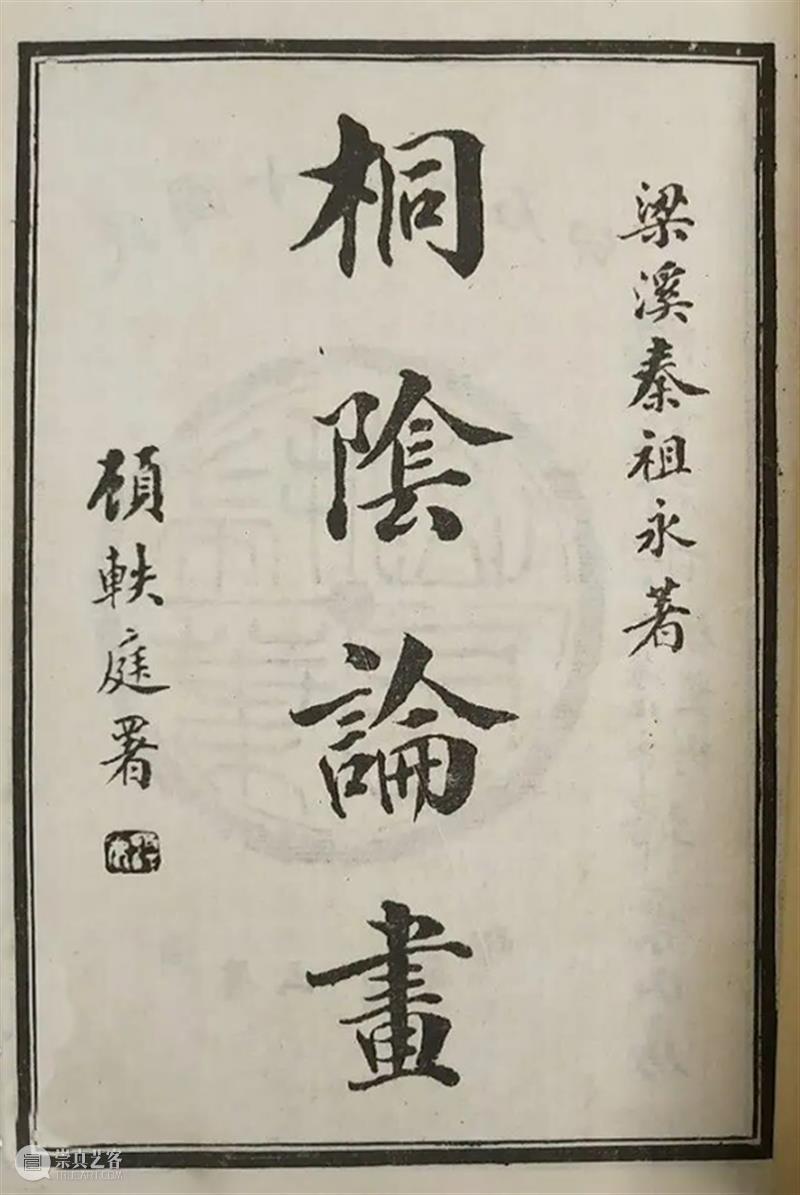 梁溪秦祖永著
桐陰論畫
頋軼庭署
崇真艺客